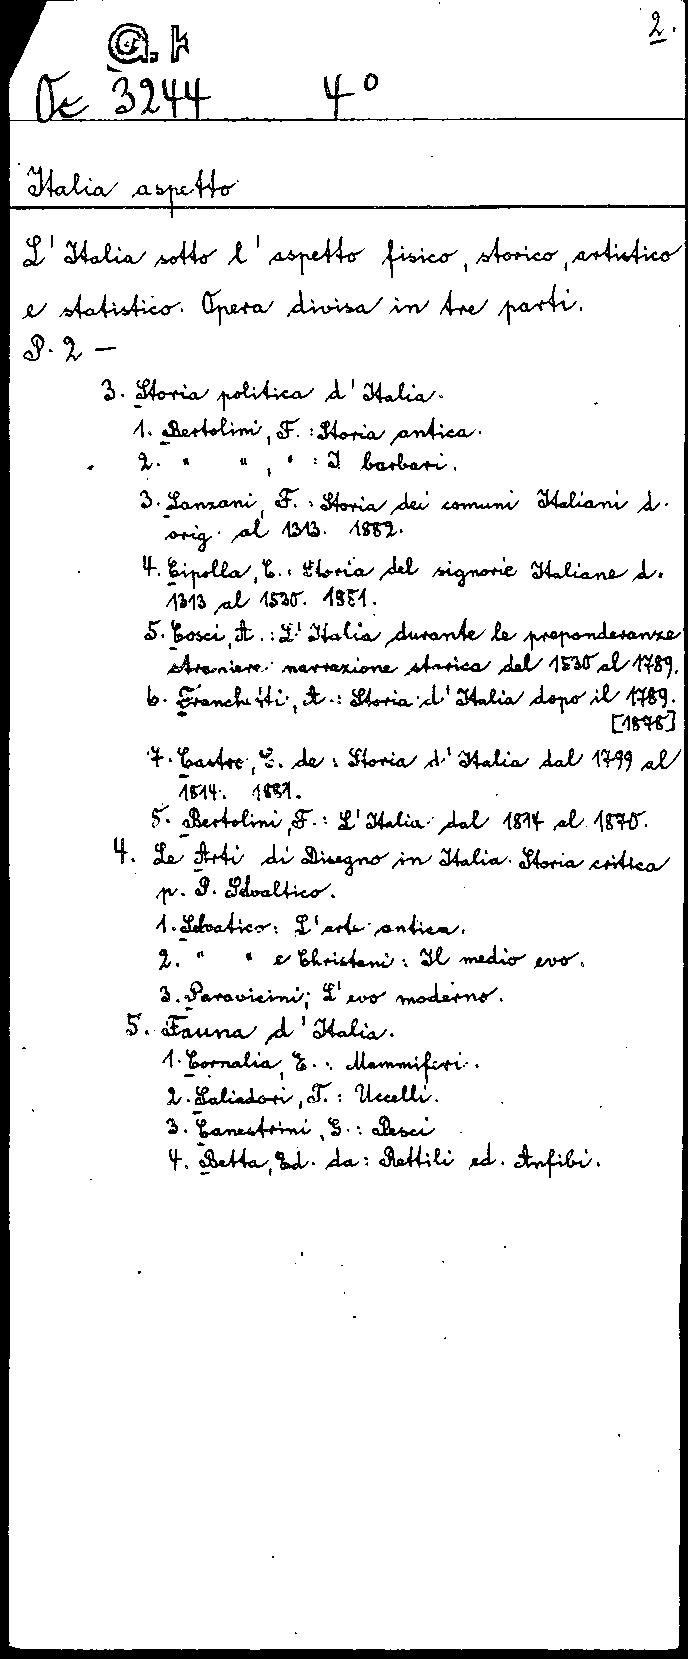 2.
@. k
Oe 3244 4°
Italia aspetto
L'Italia sotto l'aspetto fisico, storico, artistico
e statistico. Opera divisa in tre parti.
P. 2 —
3. Storia politica d'Italia.
1. Bertolini, F. : Storia antica.
2. " ", " : I barbari.
3. Lanzani, F. : Storia dei comuni Italiani d.
orig. al 1313. 1882.
4. Cipolla, C. : Storia del signorie Italiane d.
1313 al 1530. 1881.
5. Cosci, A. : L'Italia durante le preponderanze
straniere narrazione storica del 1530 al 1789.
6. Franchetti, A. : Storia d'Italia dopo il 1789.
[1878]
7. Castro, G. de : Storia d'Italia dal 1799 al
1814. 1881.
8. Bertolini, F. : L'Italia dal 1814 al 1870.
4. Le Arti di Disegno in Italia. Storia critica
p. P. Selvaltico.
1. Selvatico: L'arte antica.
2. " " e Christani : Il medio evo.
3. Paravicini; L'evo moderno.
5. Fauna d'Italia.
1. Cornalia, E. : Mammiferi.
2. Salvadori, T. : Uccelli.
3. Canestrini, G. : Pesci
4. Betta, Ed. da : Rettili ed. Anfibi.